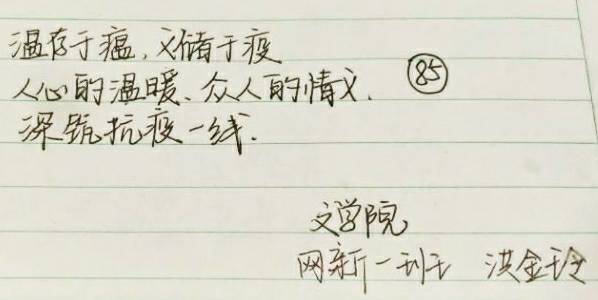 温存于瘟，义储于疫
人心的温暖、众人的情义，
85
深筑抗疫一线．
文学院
网新一班 洪金玲